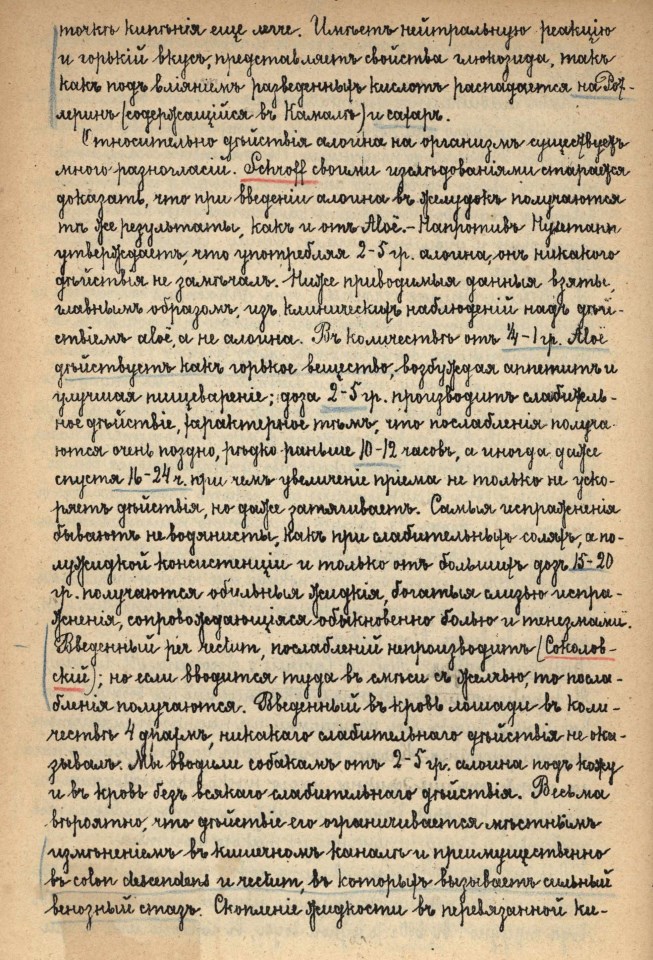 точкѣ кипѣнія еще легче. Имѣетъ нейтральную реакцію
и горькій вкусъ, представляетъ свойства глюкозида, такъ
какъ подъ вліяніемъ разведенныхъ кислотъ распадается на Рот-
леринъ (содержащійся въ Камалѣ) и сахаръ.
Относительно дѣйствія алоина на организмъ существуетъ
много разногласій. Schroff своими изслѣдованіями старается
доказать, что при введеніи алоина въ желудокъ получаются
тѣ же результаты, какъ и отъ Aloё.- Напротивъ
утверждаетъ, что употребляя 2-5 гр. алоина, онъ никакого
дѣйствія не замѣчалъ. Ниже приводимыя данныя взяты,
главнымъ образомъ, изъ клиническихъ наблюденій надъ дѣй-
ствіемъ aloё, а не алоина. Въ количествѣ отъ ¼-1 гр. Aloё
дѣйствуетъ какъ горькое вещество, возбуждая аппетитъ и
улучшая пищевареніе; доза 2-5 гр. производитъ слабитель-
ное дѣйствіе, характерное тѣмъ, что послабленія получа-
ются очень поздно, рѣдко раньше 10-12 часовъ, а иногда даже
спустя 16-24 ч. при чемъ увеличеніе пріема не только не уско-
ряетъ дѣйствія, но даже затягиваетъ. Самыя испражненія
бываютъ не водянисты, какъ при слабительныхъ соляхъ, а по-
лужидкой консистенціи и только отъ большихъ дозъ 15-20
гр. получаются обильныя жидкія, богатыя слизью испра-
жненія, сопровождающіяся обыкновенно болью и тенезмами.
Введенный per rectum, послабленій непроизводитъ (Соколов-
скій); но если вводится туда въ смѣси съ желчью, то посла-
бленія получаются. Введенный въ кровь лошади въ коли-
чествѣ 4 драхмъ, никакаго слабительнаго дѣйствія не ока-
зывалъ. Мы вводили собакамъ отъ 2-5 гр. алоина подъ кожу
и въ кровь безъ всякаго слабительнаго дѣйствія. Весьма
вѣроятно, что дѣйствіе его ограничивается мѣстнымъ
измѣненіемъ въ кишечномъ каналѣ и преимущественно
въ colon descendens и rectum, въ которыхъ вызываетъ сильный
венозный стазъ. Скопленіе жидкости въ перевязанной ки-